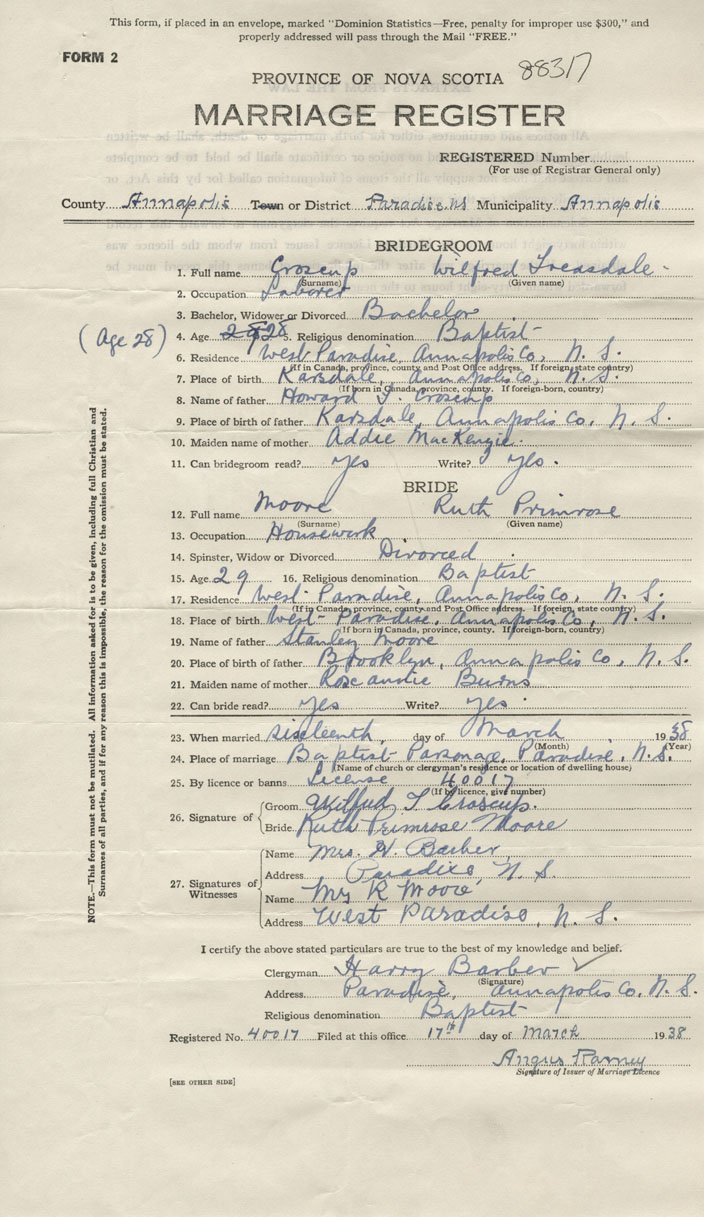 This form, if placed in an envelope, marked "Dominion Statistics—Free, penalty for improper use $300," and
properly addressed will pass through the Mail "FREE."
FORM 2
88317
PROVINCE OF NOVA SCOTIA
MARRIAGE REGISTER
REGISTERED Number
(For use of Registrar General only)
County Annapolis Town or District Paradise NS Municipality Annapolis
BRIDEGROOM
1. Full name Croscup Wilfred Treasdale
(Surname) (Given name)
2. Occupation Laborer
3. Bachelor, Widower or Divorced Bachelor
(Age 28) 4. Age 28 5. Religious denomination Baptist
6. Residence West Paradise, Annapolis Co, N. S.
(If in Canada, province, county and Post Office address. If foreign state country)
7. Place of birth Karsdale, Annapolis Co, N. S.
(If born in Canada, province, county. If foreign-born, country)
8. Name of father Howard T. Croscup
9. Place of birth of father Karsdale, Annapolis Co, N. S.
10. Maiden name of mother Addie MacKenzie
11. Can bridegroom read? yes Write? yes.
BRIDE
12. Full name Moore Ruth Primrose
(Surname) (Given name)
13. Occupation Housework
14. Spinster, Widow or Divorced Divorced
15. Age 29 16. Religious denomination Baptist
17. Residence West Paradise, Annapolis Co, N. S.
(If in Canada, province, county and Post Office address. If foreign, state country)
18. Place of birth West Paradise, Annapolis Co, N. S.
(If born in Canada, province, county. If foreign-born, country)
19. Name of father Stanley Moore
20. Place of birth of father Brooklyn, Annapolis Co, N. S.
21. Maiden name of mother Roseannie Burns
22. Can bride read? yes Write? yes.
23. When married sixteenth day of March 1938
(Month) (Year)
24. Place of marriage Baptist Parsonage, Paradise, N.S.
(Name of church or clergyman's residence or location of dwelling house)
25. By licence or banns License 40017
(If by licence, give number)
26. Signature of
Groom Wilfred T Croscup.
Bride Ruth Primrose Moore
27. Signatures of Witnesses
Name Mrs. H. Barber
Address Paradise, N. S.
Name My R Moore
Address West Paradise, N. S.
I certify the above stated particulars are true to the best of my knowledge and belief.
Clergyman Harry Barber
(Signature)
Address Paradise, Annapolis Co, N. S.
Religious denomination Baptist
Registered No. 40017 Filed at this office 17th day of March 1938
Angus Ramey
Signature of Issuer of Marriage Licence
[SEE OTHER SIDE]
NOTE.—This form must not be mutilated. All information asked for is to be given, including full Christian and
Surnames of all parties, and if for any reason this is impossible, the reason for the omission must be stated.